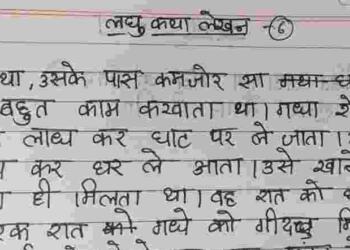 लघु कथा लेखन - ६
था, उसके पास कमजोर सा
बहुत काम करवाता था। गधा
लाध कर घाट पर ले जाता।
कर घर ले आता। उसे
ही मिलता था। वह रात को
एक रात गधे को गीदड़